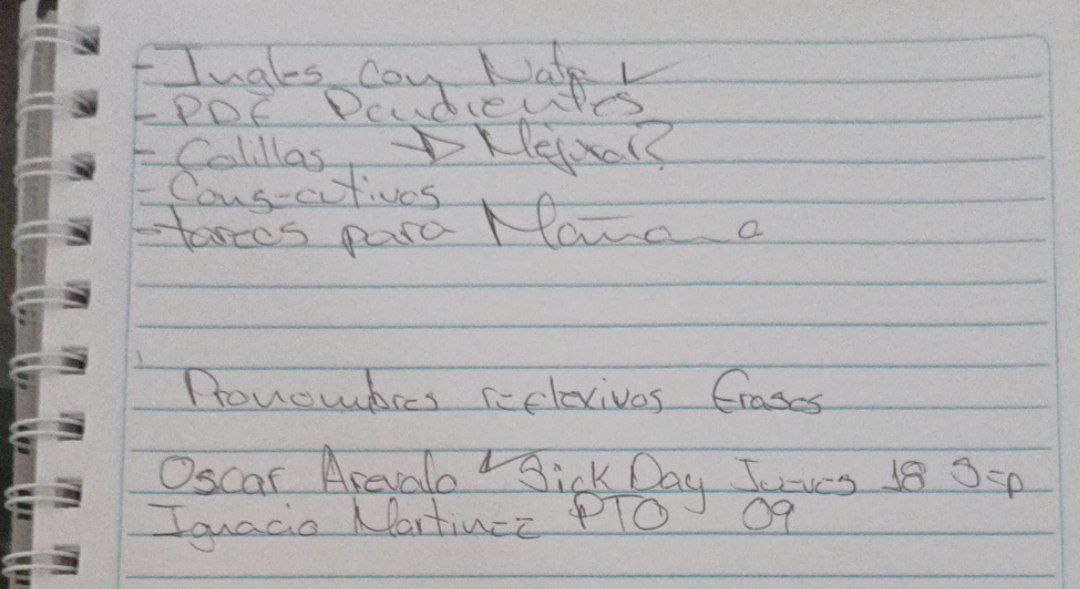 - Ingles con Nata ✓
- PDF Pendientes
- Calillas → Mejorar?
- Consecutivos
- tareas para Mañana
Pronombres reflexivos frases
Oscar Arevalo ✓ Sick Day Jueves 18 Sep
Ignacio Martinez PTO 09